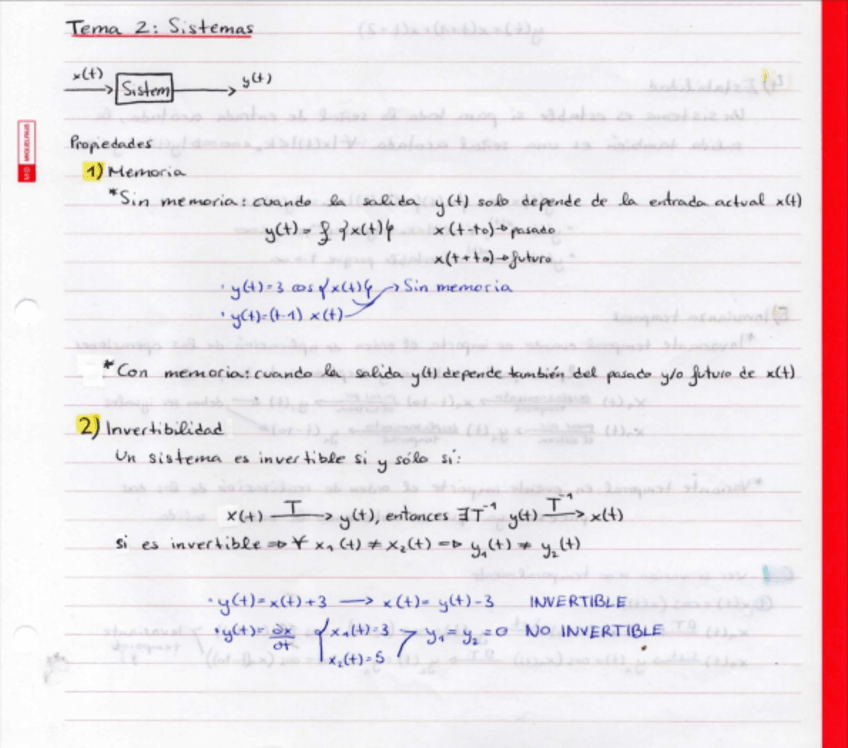 Tema 2: Sistemas
x(t) → Sistem → y(t)
Propiedades
1) Memoria
*Sin memoria: cuando la salida y(t) solo depende de la entrada actual x(t)
y(t) = f {x(t)} x(t-to)→pasado
x(t+to)→futuro
· y(t)=3 cos{x(t)} → Sin memoria
· y(t)=(t-1) x(t)
* Con memoria: cuando la salida y(t) depende también del pasado y/o futuro de x(t)
2) Invertibilidad
Un sistema es invertible si y sólo si:
x(t) —T→ y(t), entonces ∃T⁻¹ y(t) —T⁻¹→ x(t)
si es invertible ⇒ ∀ x₁(t) ≠ x₂(t) ⇒ y₁(t) ≠ y₂(t)
· y(t)=x(t)+3 → x(t)= y(t)-3 INVERTIBLE
· y(t)= ∂x/∂t { x₁(t)=3 y₁=y₂=0 NO INVERTIBLE
x₂(t)=5